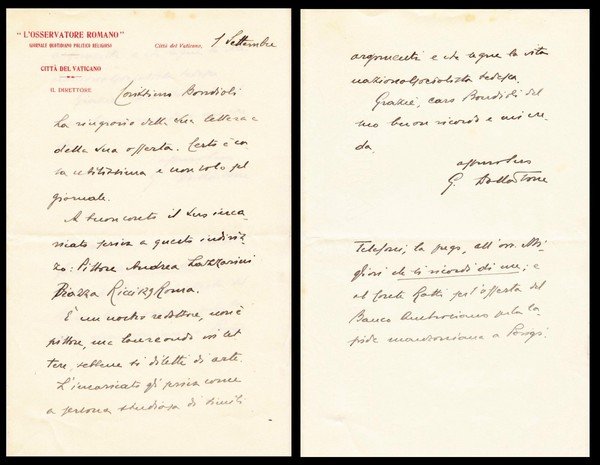 "L'OSSERVATORE ROMANO"
GIORNALE QUOTIDIANO POLITICO RELIGIOSO
CITTÀ DEL VATICANO
IL DIRETTORE
Città del Vaticano, 1 Settembre
Bondioli
La ringrazio della sua lettera e
della sua offerta. Certo è co
sa utilissima e non solo pel
giornale.
A buon conto il suo inca
ricato scriva a questo indiriz
zo: Pittore Andrea Lazzarini
Piazza Ricci Roma.
È un nostro redattore, non è
pittore, ma laureando in let
tere, sebbene si diletti di arte.
L'incaricato gli scriva come
a persona studiosa di simili
argomenti e che segue la vita
nazionalsocialista tedesca.
Grazie, caro Bondioli del
suo buon ricordo e mi cre
da.
G. Dalla Torre
Telefoni, la prego, all'on. Mi
gliori che si ricordi di me; e
al Conte Ratti per l'offerta del
Banco Ambrosiano per la la
pide manzoniana a